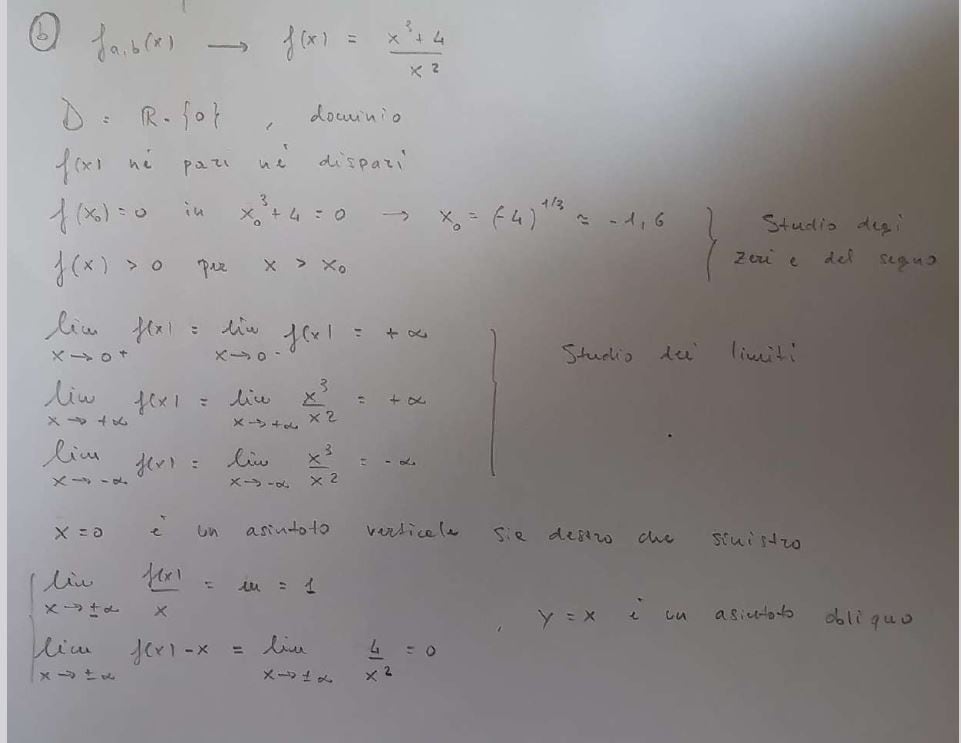 b) f_{a,b}(x) → f(x) = (x³+4)/x²
D = R - {0} , dominio
f(x) né pari né dispari
f(x₀) = 0 in x₀³ + 4 = 0 → x₀ = (-4)^{1/3} ≈ -1,6
f(x) > 0 per x > x₀
} Studio degi
zeri e del segno
lim x→0+ f(x) = lim x→0- f(x) = +∞
lim x→+∞ f(x) = lim x→+∞ x³/x² = +∞
lim x→-∞ f(x) = lim x→-∞ x³/x² = -∞
} Studio dei limiti
x=0 è un asintoto verticale sia destro che sinistro
{ lim x→±∞ f(x)/x = m = 1
lim x→±∞ f(x)-x = lim x→±∞ 4/x² = 0
, y = x è un asintoto obliquo